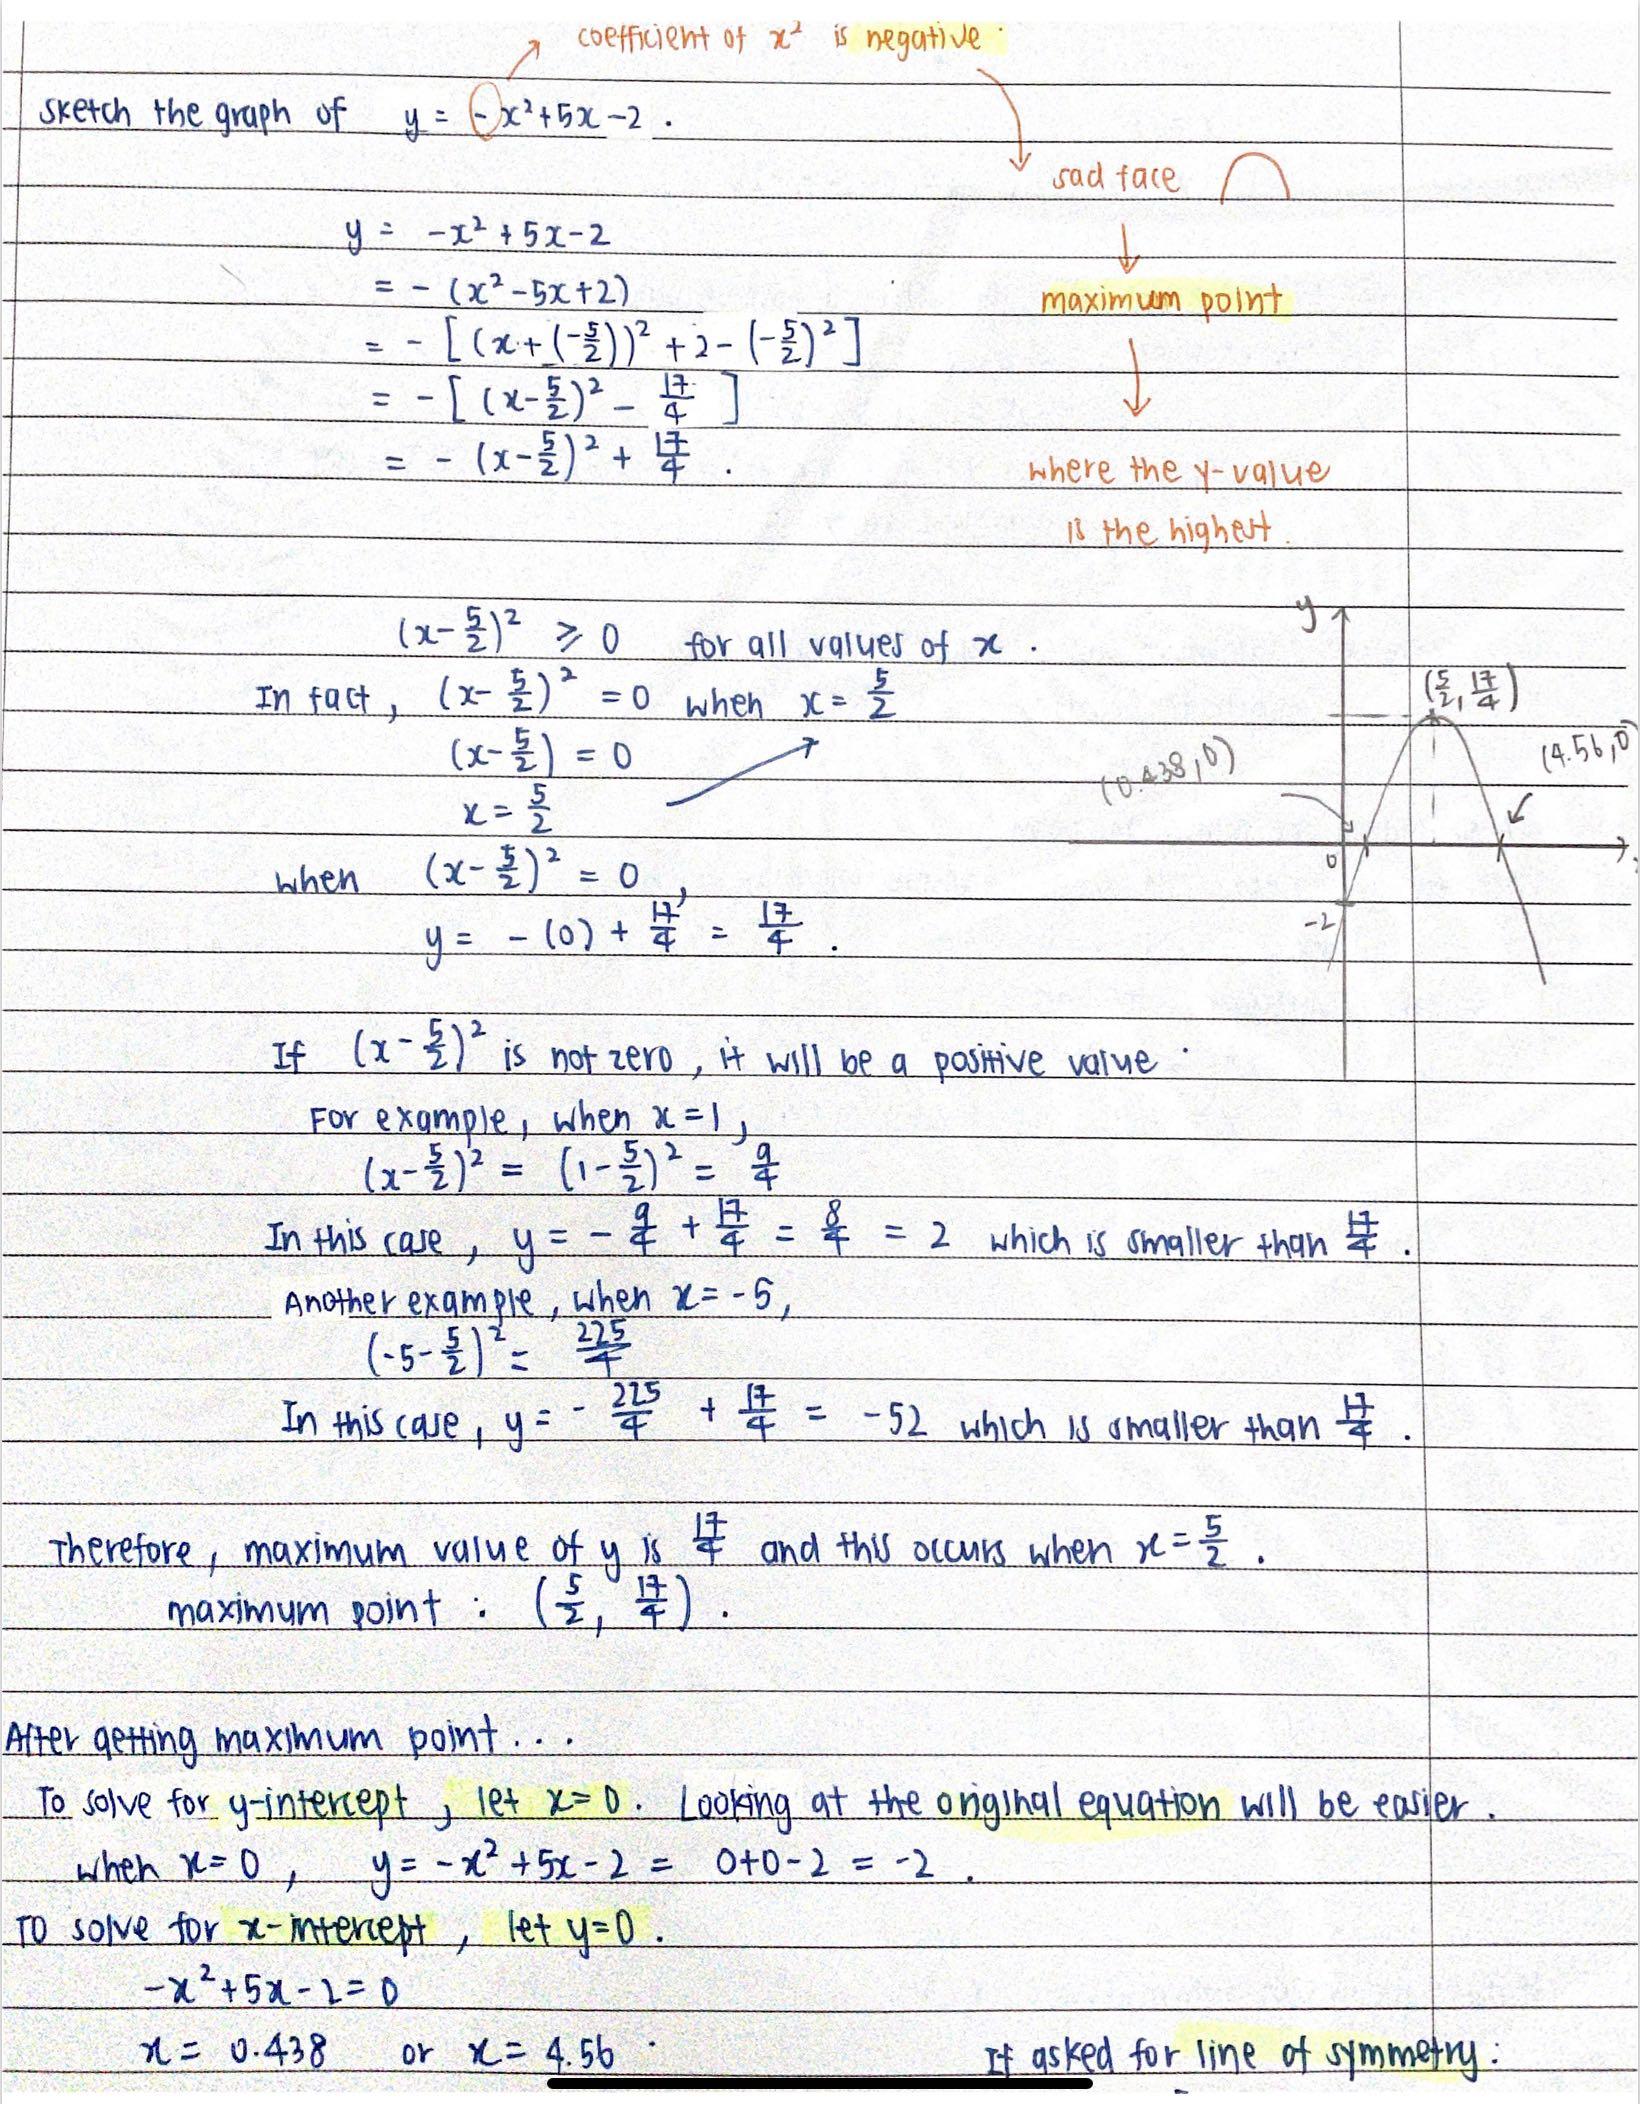 coefficient of x² is negative.
sketch the graph of y = -x²+5x-2.
sad face
y = -x²+5x-2
= -(x²-5x+2)
maximum point
= -[(x+(-5/2))²+2-(-5/2)²]
= -[(x-5/2)² - 17/4]
= -(x-5/2)² + 17/4.
where the y-value
is the highest.
(x-5/2)² ≥ 0 for all values of x.
In fact, (x-5/2)² = 0 when x = 5/2
(x-5/2) = 0
x = 5/2
when (x-5/2)² = 0,
y = -(0) + 17/4 = 17/4.
y
(5/2, 17/4)
(0.438,0)
(4.56,0
0
-2
If (x-5/2)² is not zero, it will be a positive value.
For example, when x=1,
(x-5/2)² = (1-5/2)² = 9/4
In this case, y = -9/4 + 17/4 = 8/4 = 2 which is smaller than 17/4.
Another example, when x=-5,
(-5-5/2)² = 225/4
In this case, y = -225/4 + 17/4 = -52 which is smaller than 17/4.
Therefore, maximum value of y is 17/4 and this occurs when x = 5/2.
maximum point : (5/2, 17/4).
After getting maximum point...
To solve for y-intercept, let x=0. Looking at the original equation will be easier.
when x=0, y = -x²+5x-2 = 0+0-2 = -2.
To solve for x-intercept, let y=0.
-x²+5x-2=0
x = 0.438 or x = 4.56.
If asked for line of symmetry: